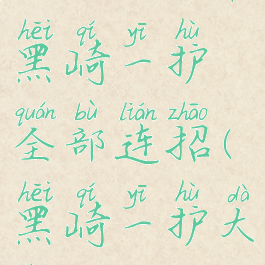 hēi qí yī hù
黑崎一护
quán bù lián zhāo
全部连招(
hēi qí yī hù dà
黑崎一护大